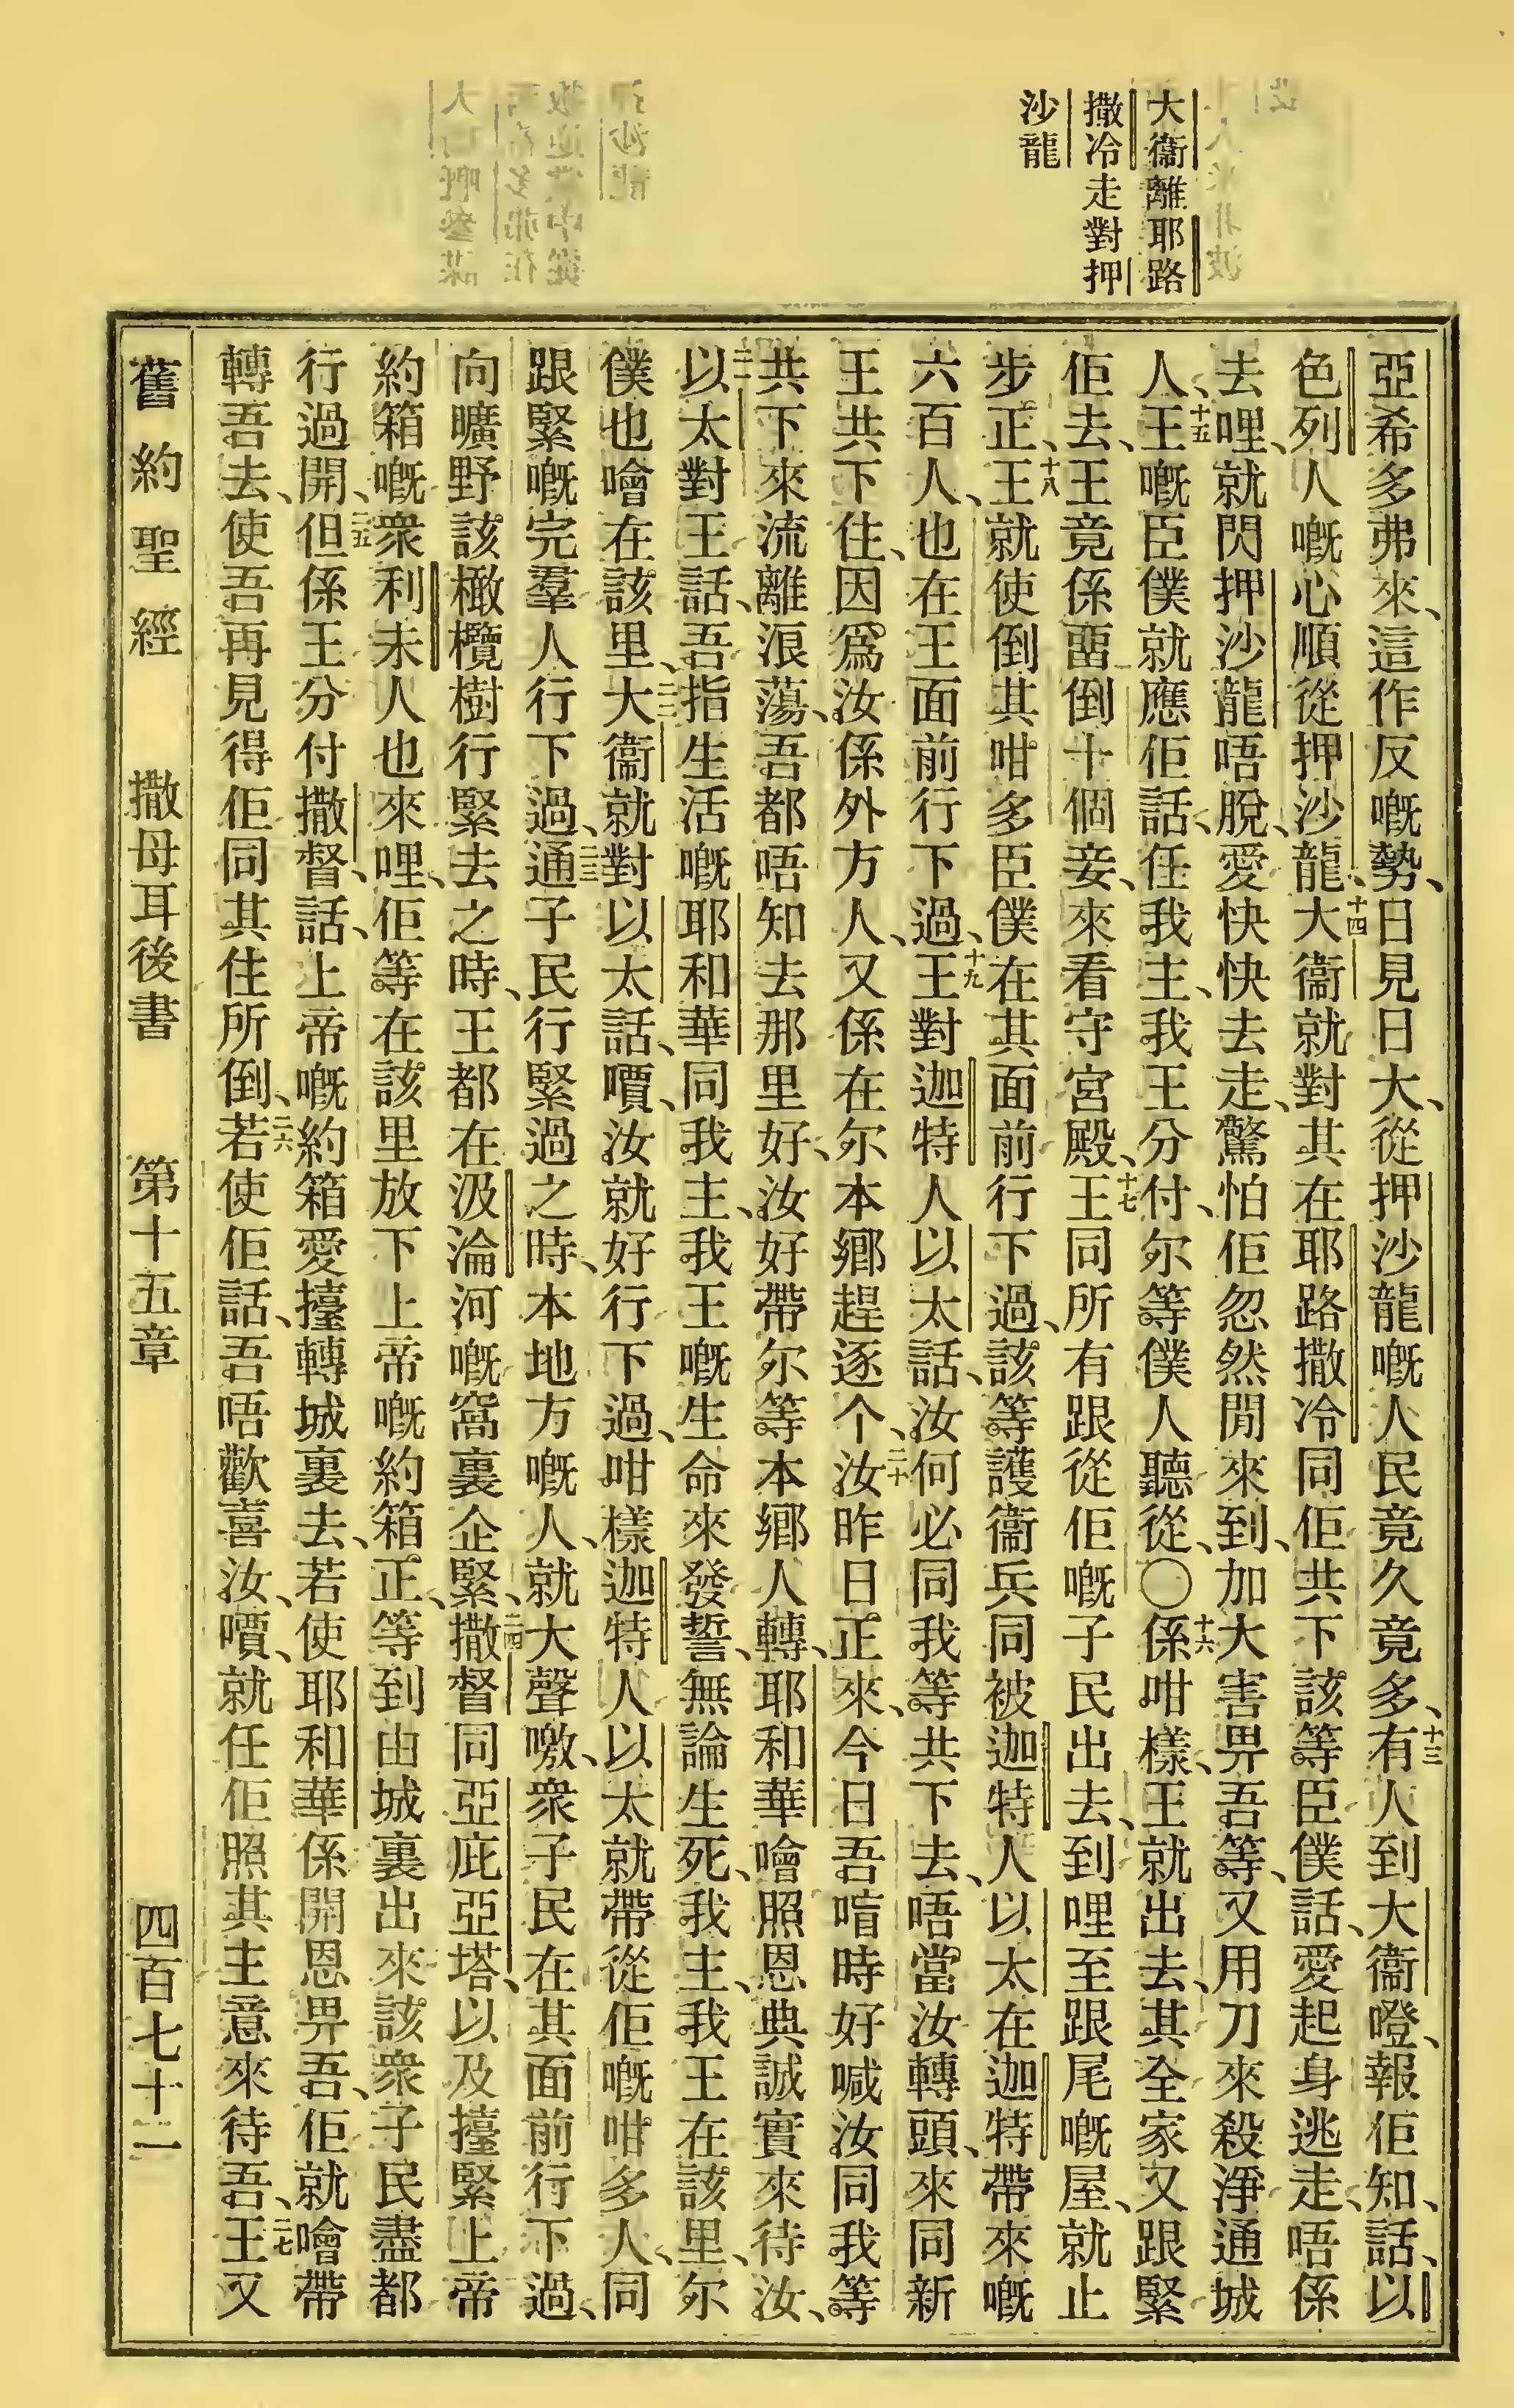 大衞離耶路
撒冷走對押
沙龍
亞希多弗來、這作反嘅勢、日見日大、從押沙龍嘅人民竟久竟多、十三有人到大衞嶝、報佢知、話、以
色列人嘅心順從押沙龍、十四大衞就對其在耶路撒冷同佢共下該等臣僕話、愛起身逃走、唔係
去哩、就閃押沙龍唔脫、愛快快去走、驚怕佢忽然閒來到、加大害畀吾等、又用刀來殺淨通城
人、十五王嘅臣僕就應佢話、任我主、我王分付、尔等僕人聽從、〇十六係咁樣、王就出去、其全家又跟緊
佢去、王竟係畱倒十個妾、來看守宮殿、十七王同所有跟從佢嘅子民出去、到哩至跟尾嘅屋、就止
步正、十八王就使倒其咁多臣僕在其面前行下過、該等護衞兵同被迦特人以太在迦特帶來嘅
六百人、也在王面前行下過、十九王對迦特人以太話、汝何必同我等共下去、唔當汝轉頭、來同新
王共下住、因爲汝係外方人、又係在尔本鄉趕逐个、二十汝昨日正來、今日吾喑時好喊汝同我等
共下來流離浪蕩、吾都唔知去那里好、汝好帶尔等本鄉人轉、耶和華噲照恩典誠實來待汝、
二一以太對王話、吾指生活嘅耶和華同我主、我王嘅生命來發誓、無論生死、我主、我王在該里、尔
僕也噲在該里、二二大衞就對以太話、嘪、汝就好行下過、咁樣迦特人以太就帶從佢嘅咁多人、同
跟緊嘅完羣人行下過、二三通子民行緊過之時、本地方嘅人、就大聲噭、衆子民在其面前行下過、
向曠野該橄欖樹行緊去之時、王都在汲淪河嘅窩裏企緊、二四撒督同亞庇亞塔、以及擡緊上帝
約箱嘅衆利未人也來哩、佢等在該里放下上帝嘅約箱正、等到由城裏出來該衆子民盡都
行過開、二五但係王分付撒督、話、上帝嘅約箱愛擡轉城裏去、若使耶和華係開恩畀吾、佢就噲帶
轉吾去、使吾再見得佢同其住所倒、二六若使佢話、吾唔歡喜汝、嘪、就任佢照其主意來待吾、二七王又
舊約聖經 撒母耳後書 第十五章 四百七十二